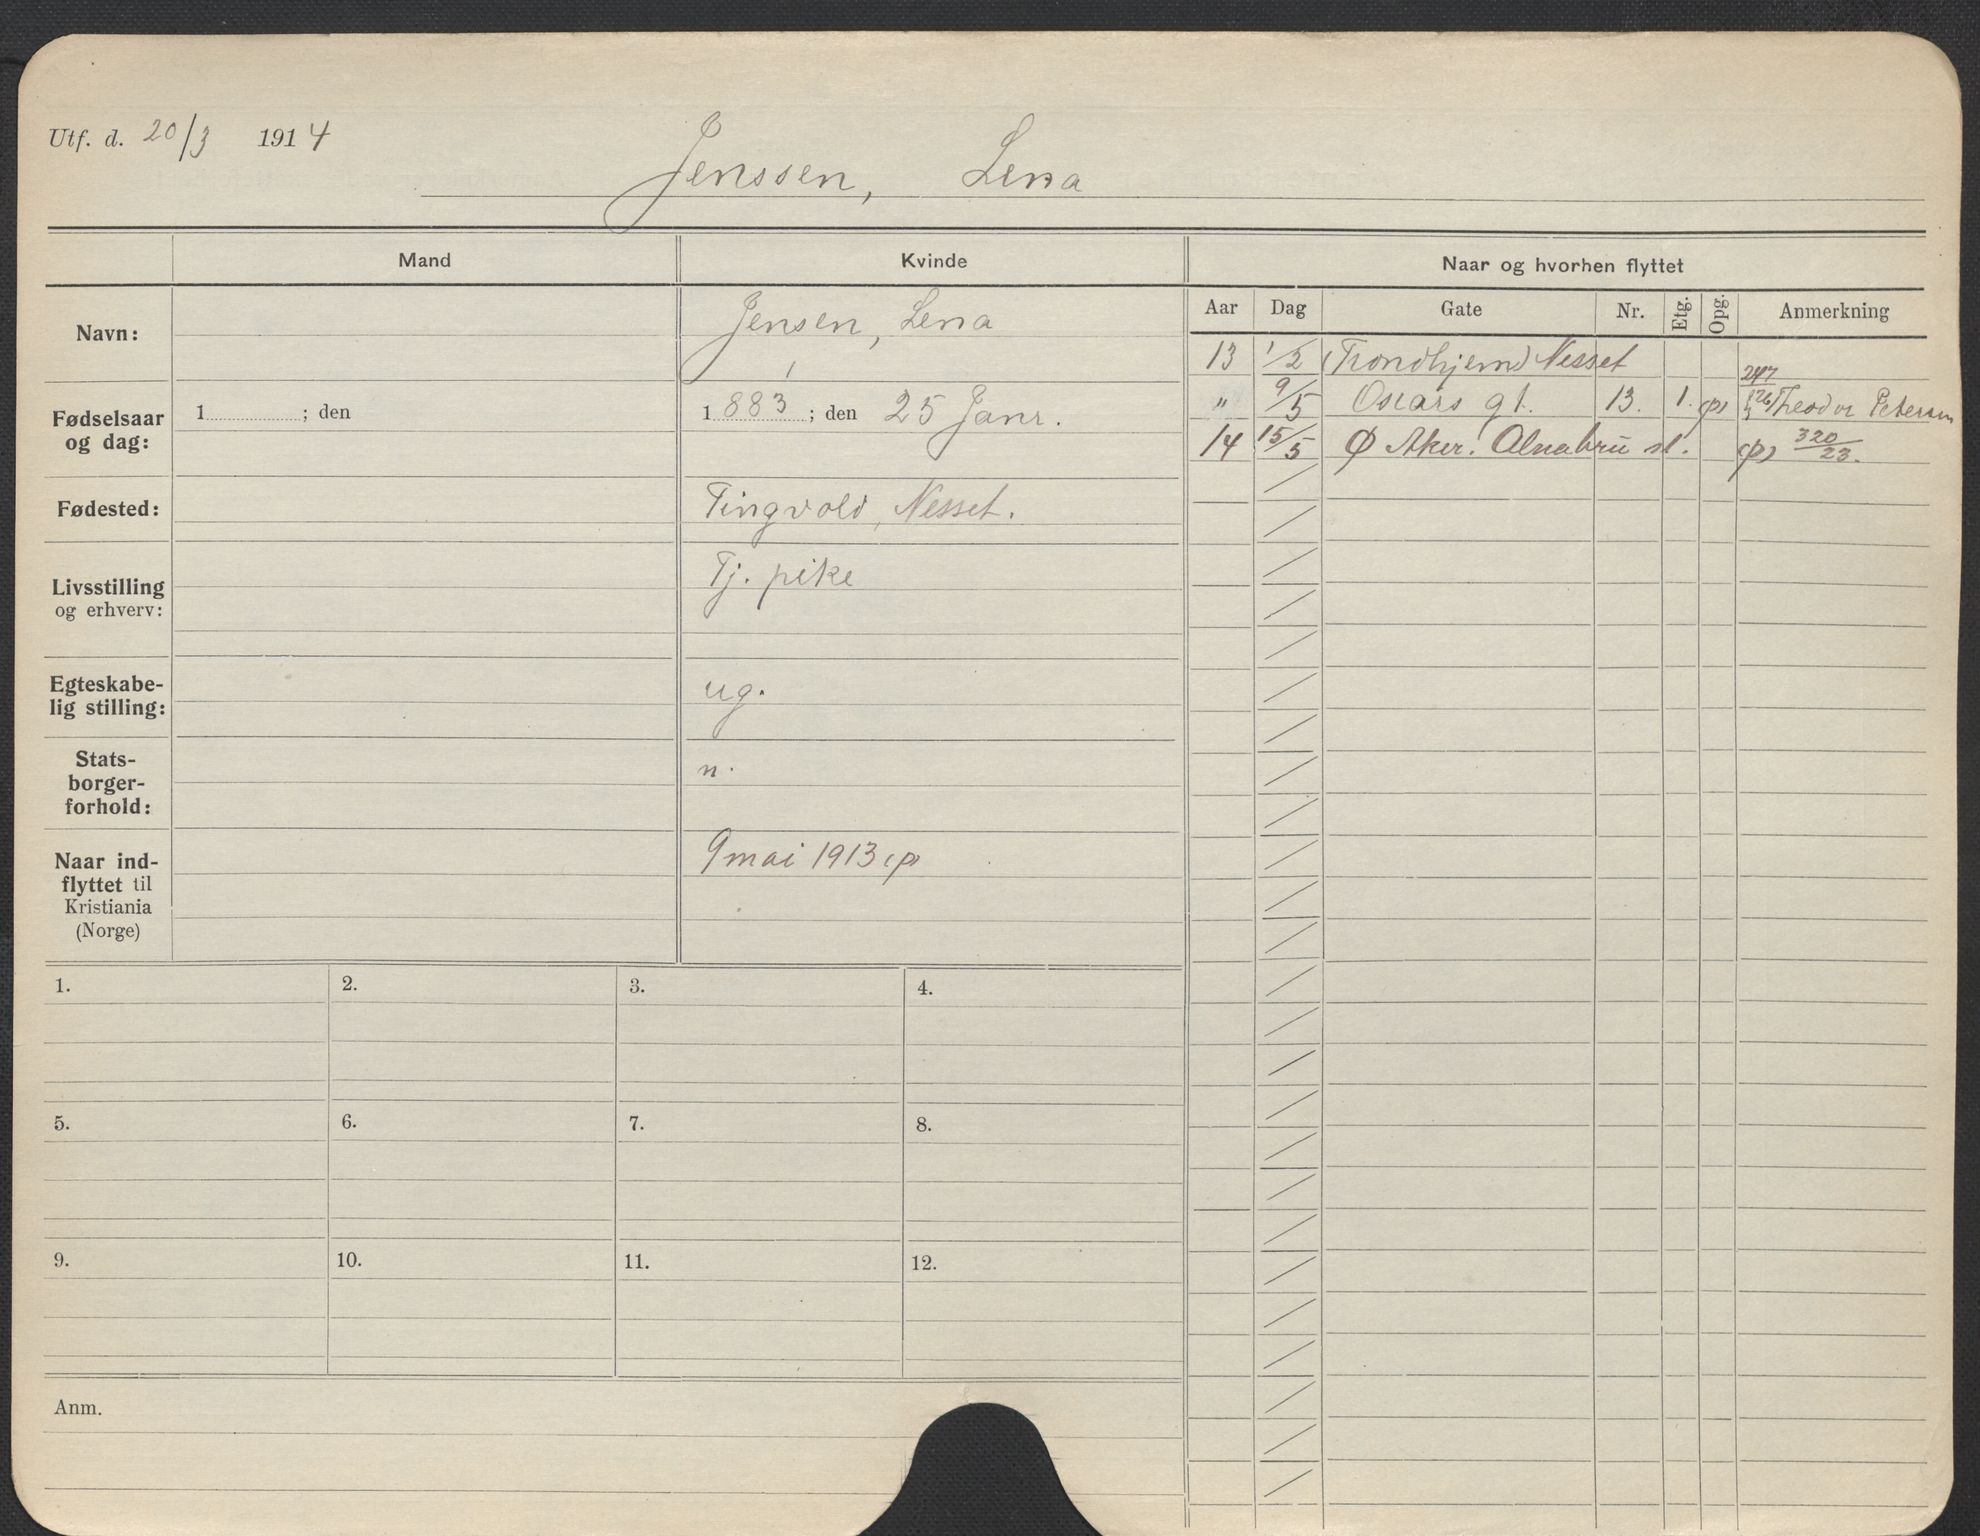 Utf. d. 20/3 1914
Jenssen, Lena
Mand
Kvinde
Naar og hvorhen flyttet
Navn:
Jensen, Lena
Fødselsaar og dag:
1 ; den
1883 ; den 25 Janr.
Fødested:
Tingvold, Nesset.
Livsstilling og erhverv:
Tj. pike
Egteskabe-
lig stilling:
ug.
Stats-
borger-
forhold:
n.
Naar ind-
flyttet til
Kristiania
(Norge)
9 mai 1913 (p)
Aar Dag Gate Nr. Etg. Opg. Anmerkning
13 1/2 (Trondhjem) Nesset
" 9/5 Oscars gt. 13. 1. (p) Theodor Petersen
14 15/5 Ø Aker. Alnabru st. (p) 320/23.
1. 2. 3. 4.
5. 6. 7. 8.
9. 10. 11. 12.
Anm.